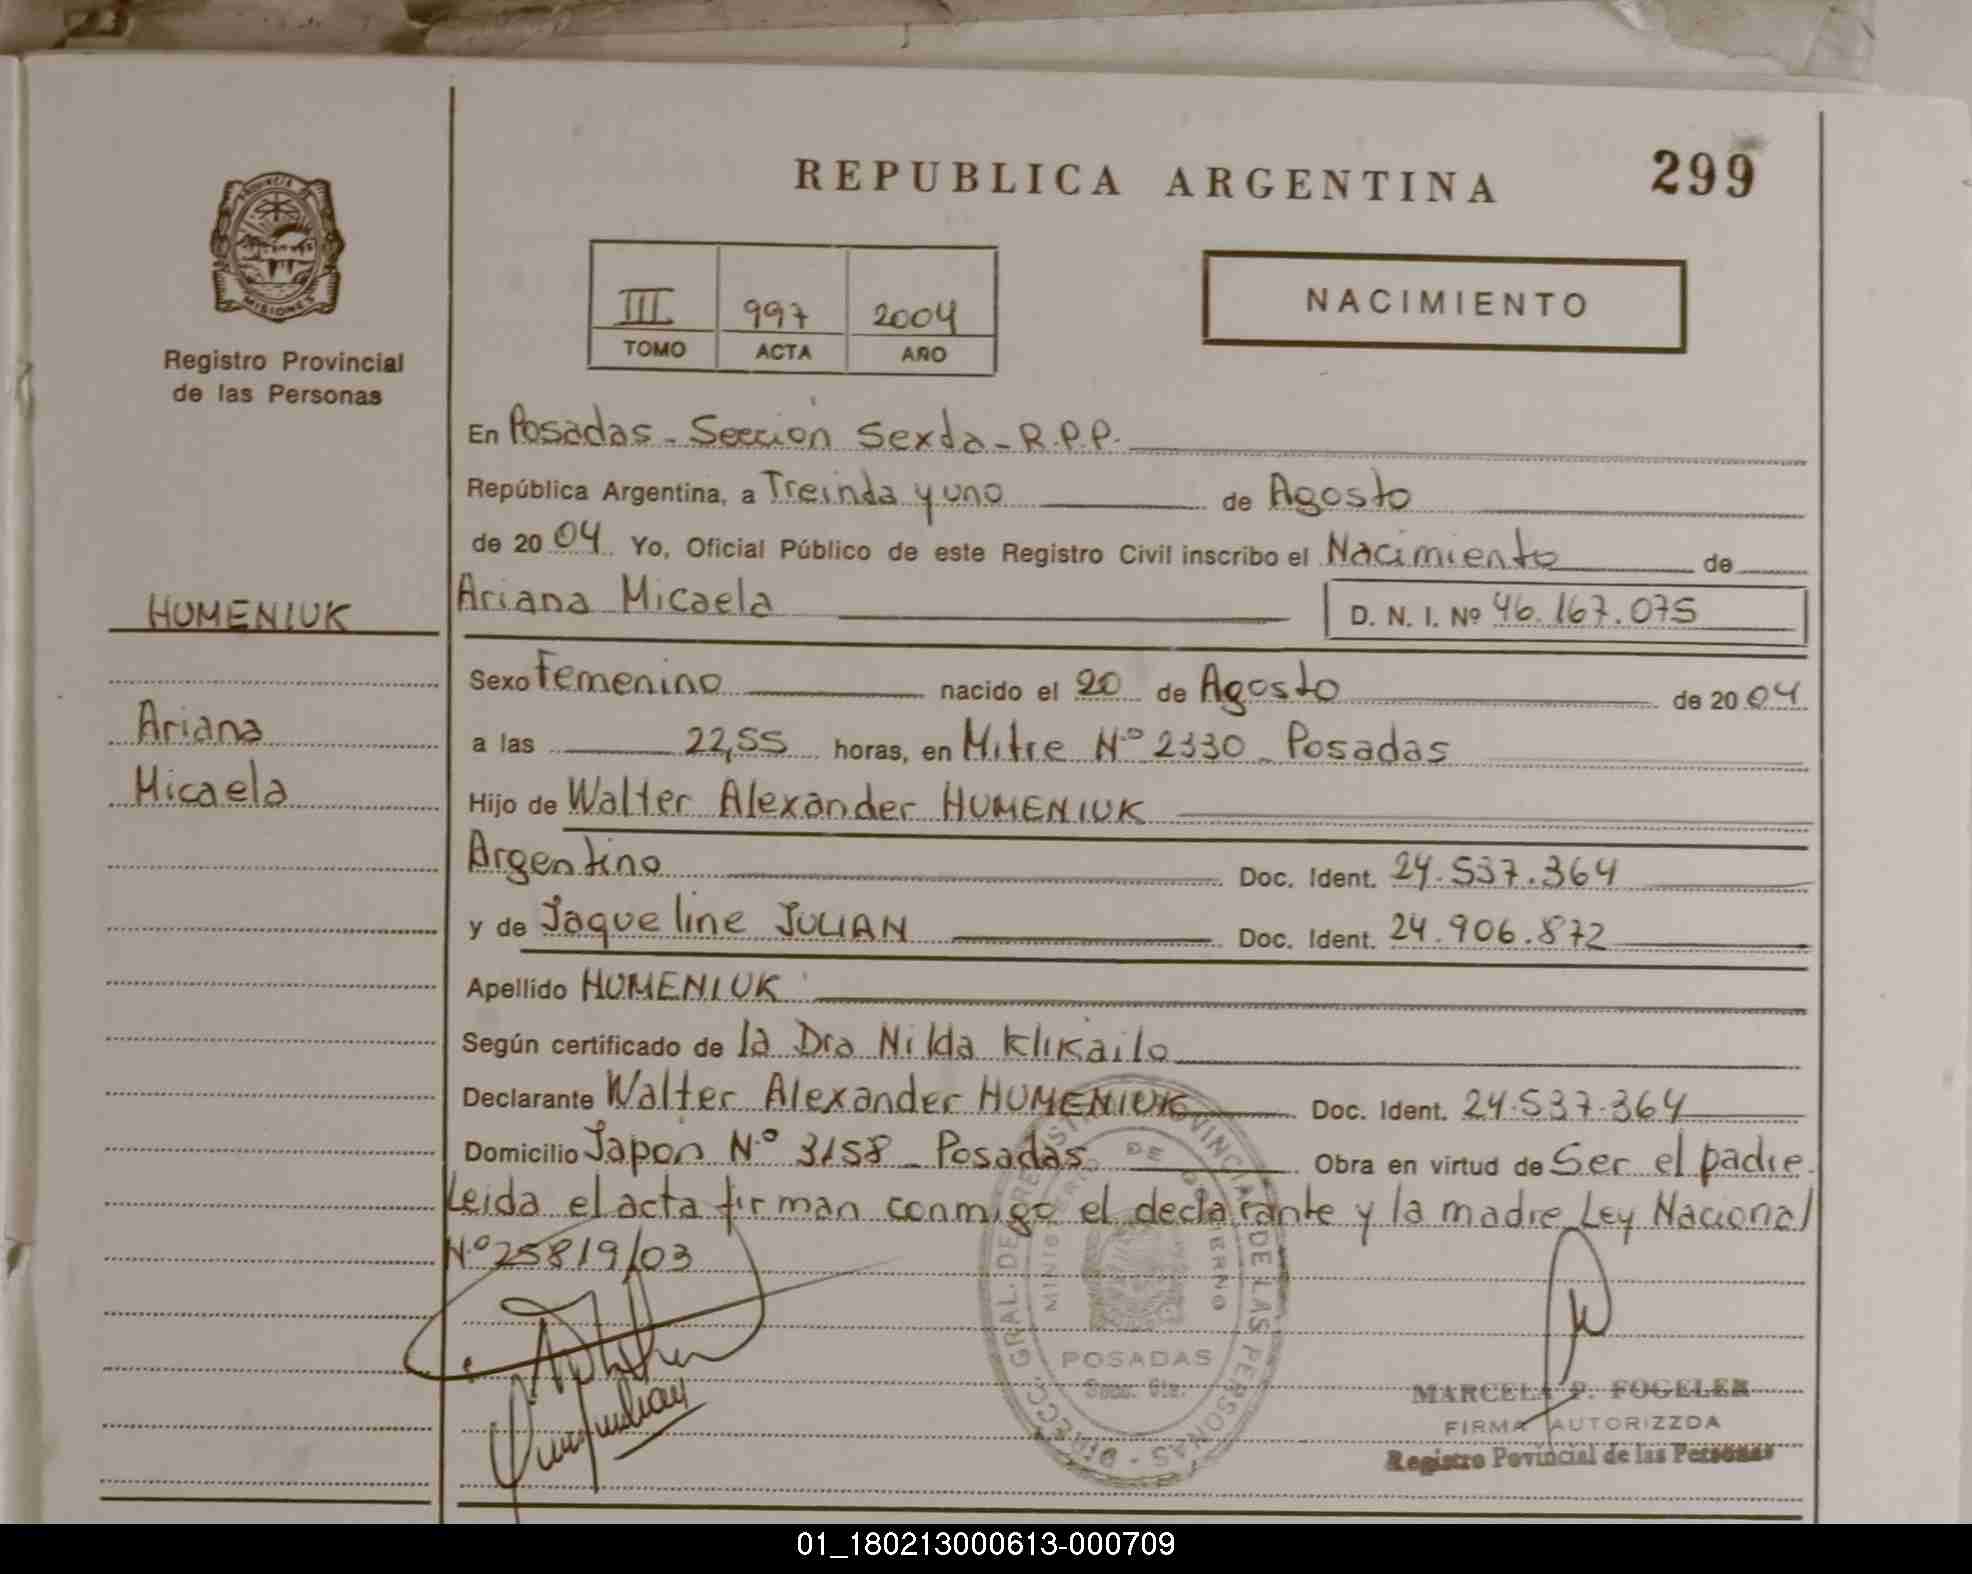 REPUBLICA ARGENTINA
299
PROVINCIA DE
MISIONES
Registro Provincial
de las Personas
III 997 2004
TOMO ACTA AÑO
NACIMIENTO
En Posadas - Sección Sexta - R.P.P.
República Argentina, a Treinta y uno de Agosto
de 2004 Yo, Oficial Público de este Registro Civil inscribo el Nacimiento de
HUMENIUK
Ariana Micaela
D. N. I. Nº 46.167.075
Sexo Femenino nacido el 20 de Agosto de 2004
Ariana
a las 22,55 horas, en Mitre Nº 2330 - Posadas
Micaela
Hijo de Walter Alexander HUMENIUK
Argentino Doc. Ident. 24.537.364
y de Jaqueline JULIAN Doc. Ident. 24.906.872
Apellido HUMENIUK
Según certificado de la Dra Nilda Klikailo
Declarante Walter Alexander HUMENIUK Doc. Ident. 24.537.364
Domicilio Japón Nº 3158 - Posadas Obra en virtud de Ser el padre.
Leida el acta firman conmigo el declarante y la madre Ley Nacional
Nº 25819/03
DIRECC. GRAL. DE REGISTRO PROVINCIAL DE LAS PERSONAS
MINISTERIO DE GOBIERNO
POSADAS
MARCELA P. FOGELER
FIRMA AUTORIZZDA
Registro Povincial de las Personas
01_180213000613-000709